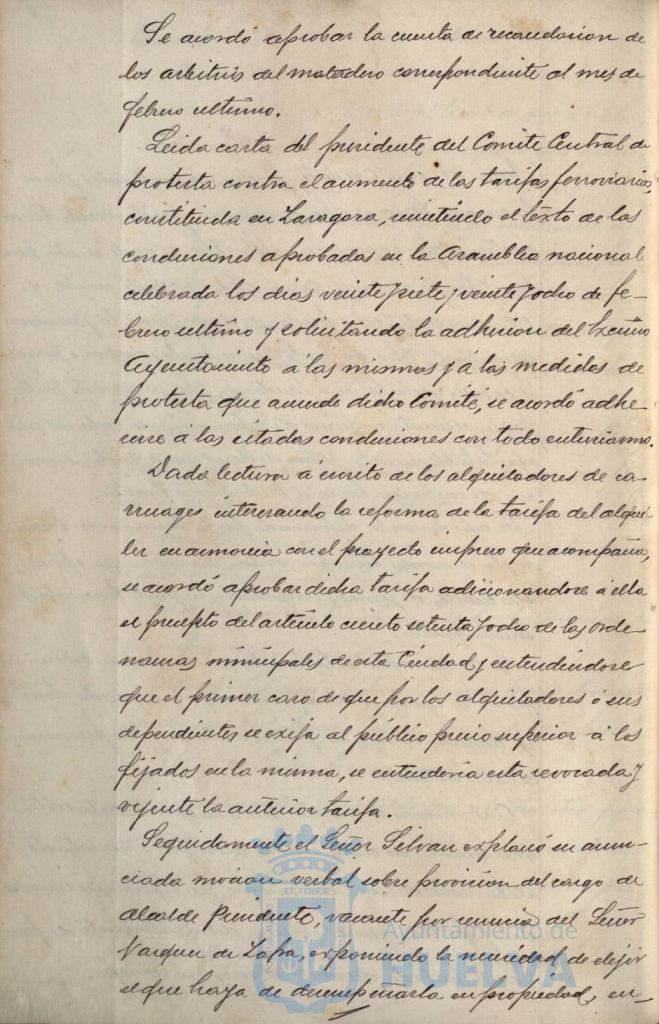 Se acordó aprobar la cuenta de recaudacion de
los arbitrios del matadero correspondiente al mes de
febrero ultimo.
Leida carta del presidente del Comité Central de
protesta contra el aumento de las tarifas ferroviarias,
constituida en Zaragoza, remitiendo el texto de las
conclusiones aprobadas en la Asamblea nacional
celebrada los dias veinte y siete y veinte y ocho de fe-
brero ultimo y solicitando la adhesion del Excmo
Ayuntamiento á las mismas y á las medidas de
protesta que acuerde dicho Comité, se acordó adhe-
rirse á las citadas conclusiones con todo entusiasmo.
Dada lectura á escrito de los alquiladores de ca-
rruages interesando la reforma de la tarifa del alqui-
ler en armonia con el proyecto impreso que acompaña,
se acordó aprobar dicha tarifa adicionandose á ella
el precepto del artículo ciento setenta y ocho de las orde
nanzas municipales de esta Ciudad y entendiendose
que el primer caso de que por los alquiladores ó sus
dependientes se exija al público precio superior á los
fijados en la misma, se entenderia esta revocada y
vijente la anterior tarifa.
Seguidamente el Señor Silvan explanó su anun-
ciada mocion verbal sobre provision del cargo de
Alcalde Presidente, vacante por renuncia del Señor
Vazquez de Zafra, exponiendo la necesidad de elejir
el que haya de desempeñarla en propiedad, en-
Ayuntamiento de
HUELVA